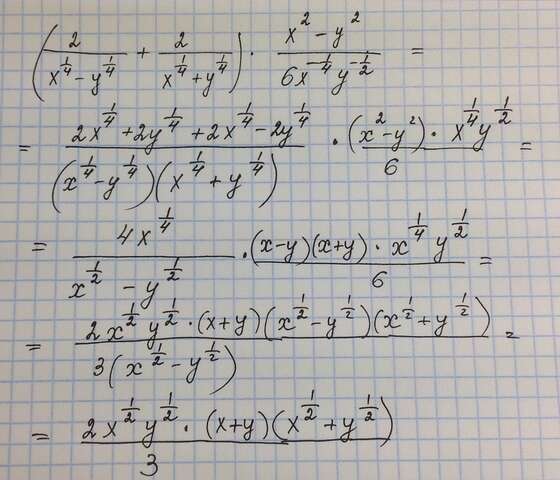 (2/(x^(1/4) - y^(1/4)) + 2/(x^(1/4) + y^(1/4))) · (x^2 - y^2)/(6x^(-1/4)y^(-1/2)) =
= (2x^(1/4) + 2y^(1/4) + 2x^(1/4) - 2y^(1/4))/((x^(1/4) - y^(1/4))(x^(1/4) + y^(1/4))) · ((x^2 - y^2) · x^(1/4)y^(1/2))/6 =
= 4x^(1/4)/(x^(1/2) - y^(1/2)) · ((x-y)(x+y) · x^(1/4)y^(1/2))/6 =
= (2x^(1/2)y^(1/2) · (x+y)(x^(1/2) - y^(1/2))(x^(1/2) + y^(1/2)))/(3(x^(1/2) - y^(1/2))) =
= (2x^(1/2)y^(1/2) · (x+y)(x^(1/2) + y^(1/2)))/3